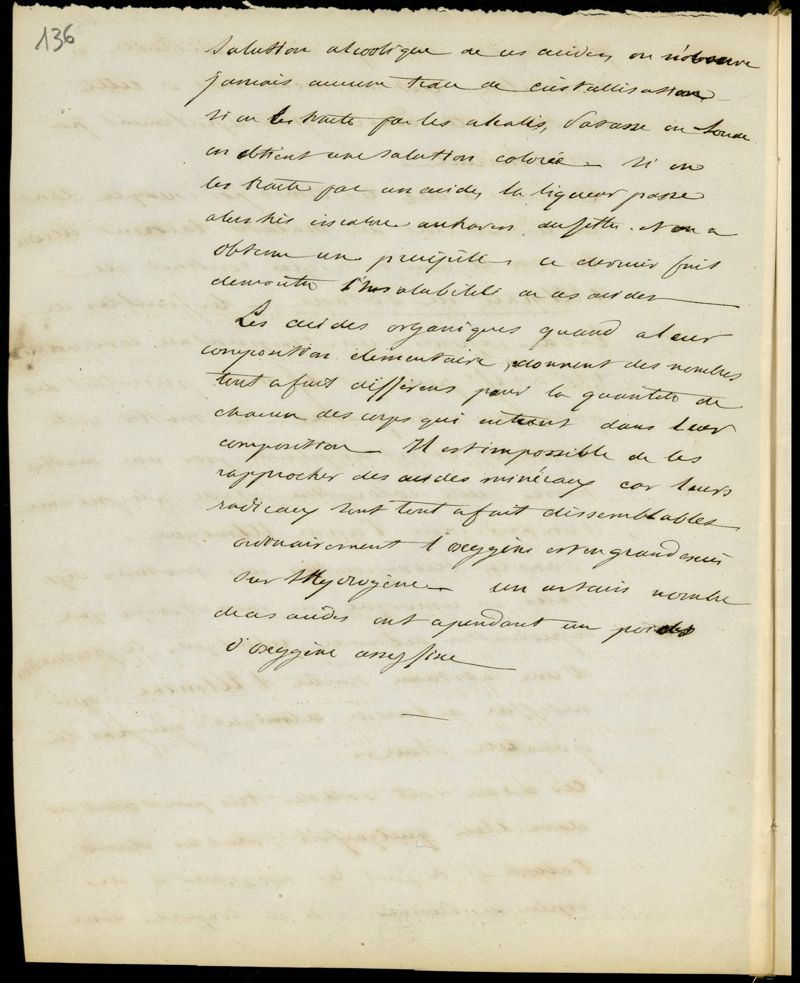 136
solution alcoolique de ces acides, on n'observe
jamais aucune trace de cristallisation
si on les traite par les alcalis, Potasse ou Soude
on obtient une solution colorée - si on
les traite par un acide, la liqueur passe
alors très incolore au travers du filtre et on a
obtenu un précipité, ce dernier fait
démontre l'insolubilité de ces acides
Les acides organiques quand a leur
composition élémentaire, donnent des nombres
tout a fait différens pour la quantité de
chacun des corps qui entrent dans leur
composition - Il est impossible de les
rapprocher des acides minéraux car leurs
radicaux sont tout a fait dissemblables
ordinairement l'oxygène est en grand excès
sur l'Hydrogène - un certain nombre
de ces acides ont cependant un poids
d'oxygène assez fixe